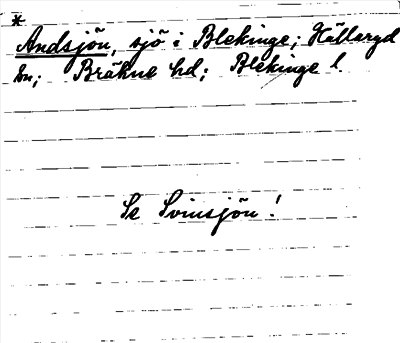 *
Andsjön, sjö i Blekinge; Hällaryd
sn; Bräkne hd; Blekinge l.
Se Svinsjön!